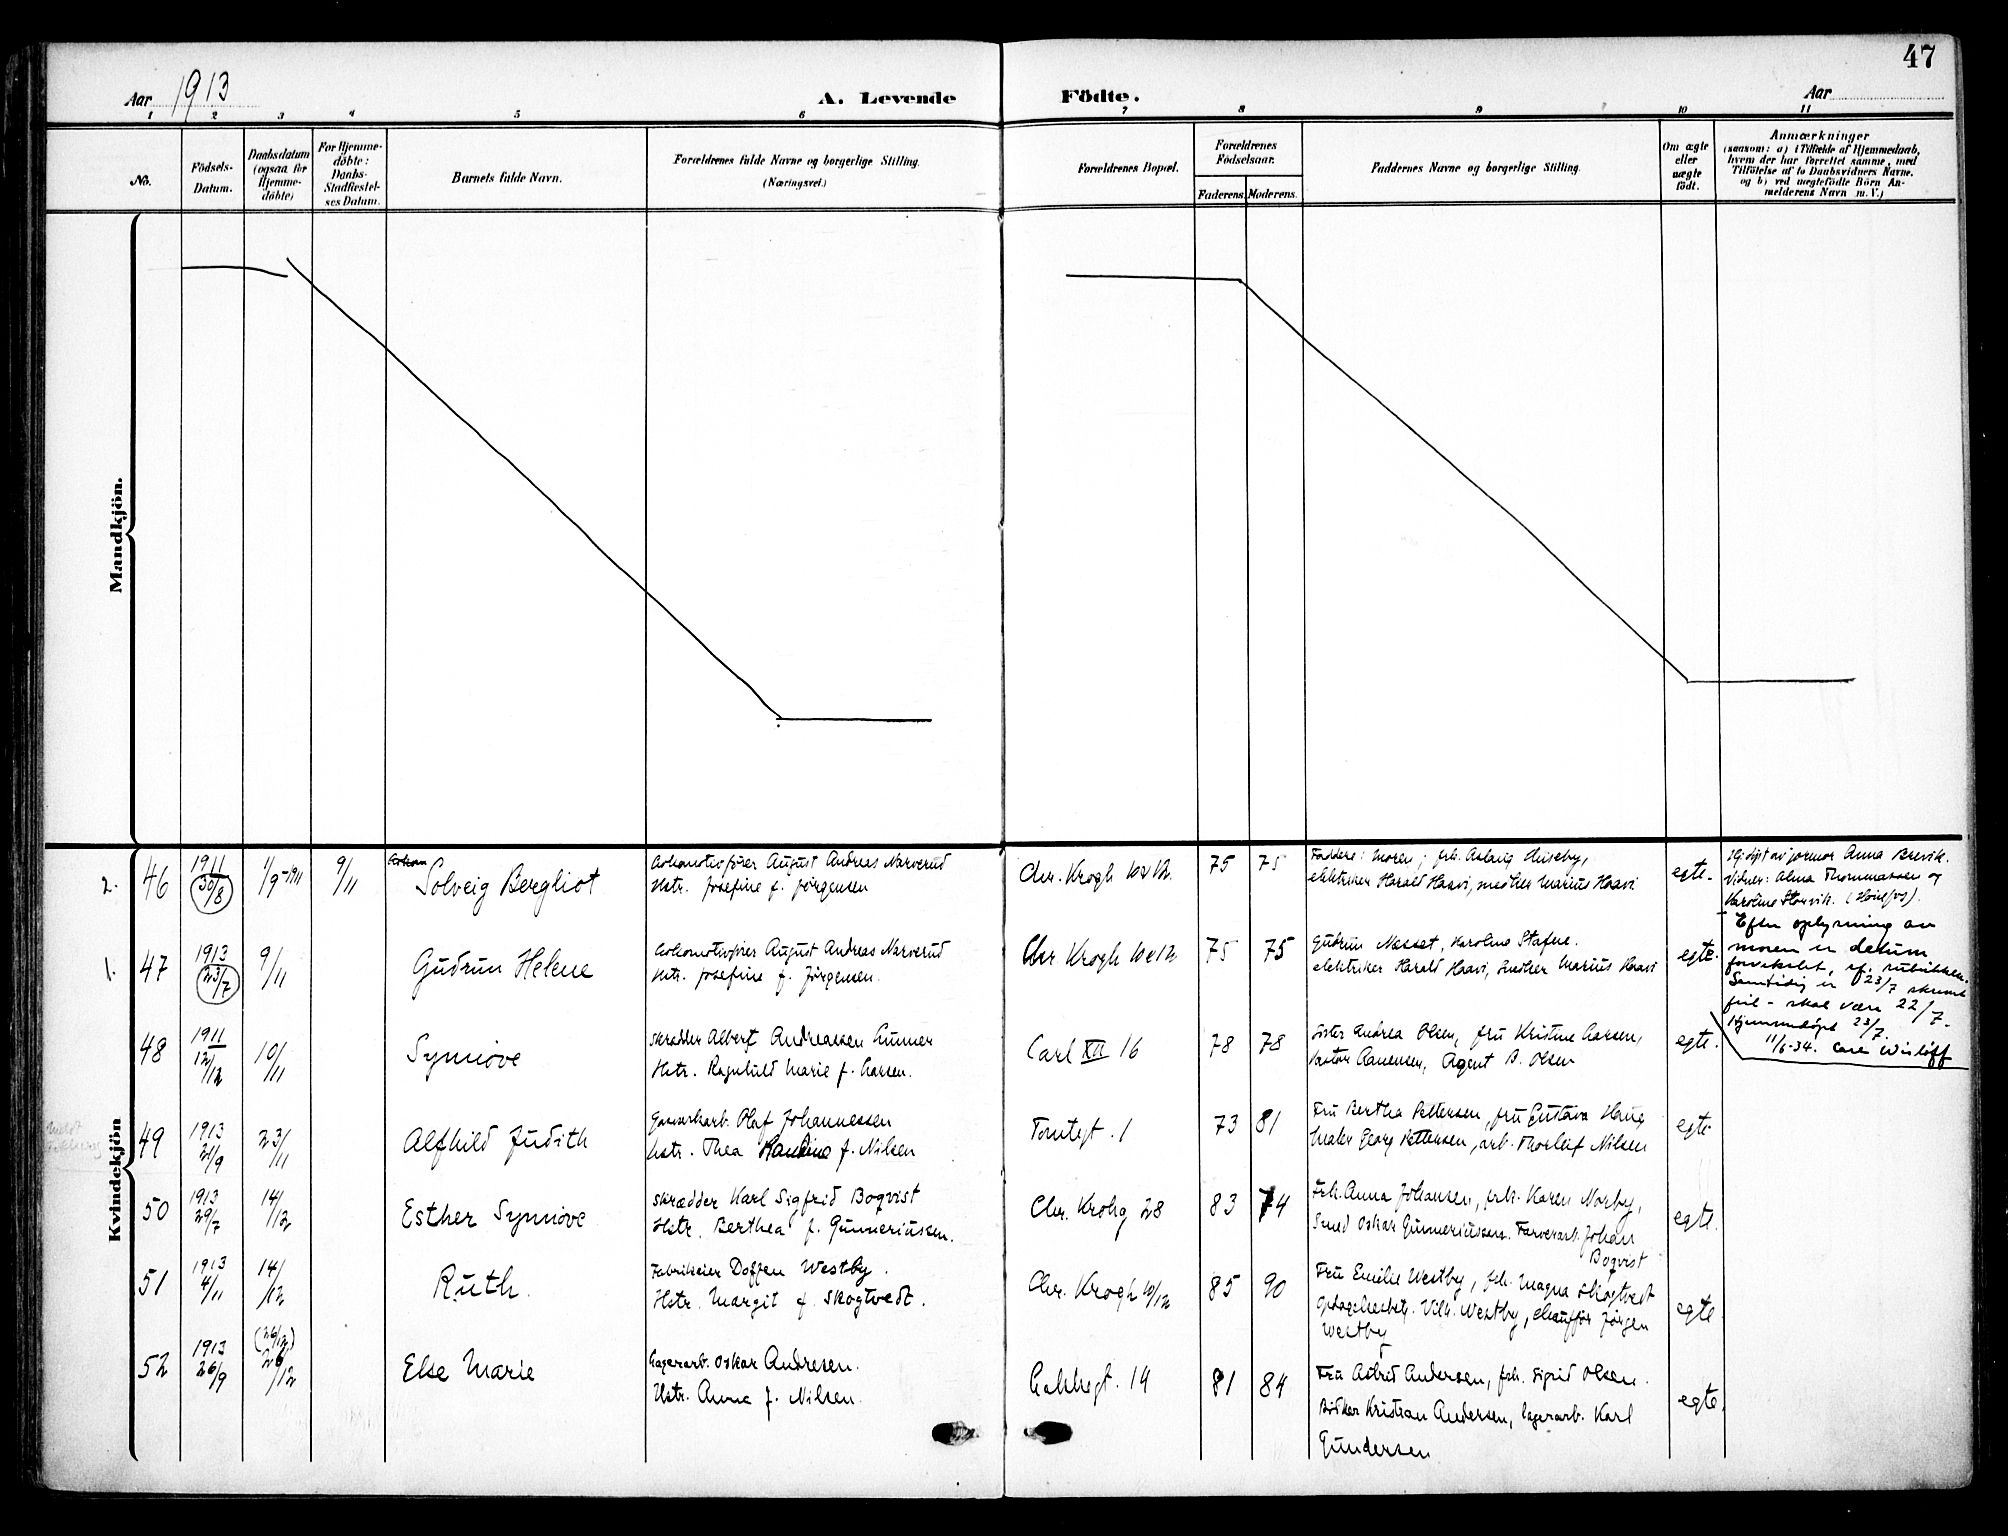 47
Aar 1913
A. Levende Födte.
Aar
1 2 3 4 5 6 7 8 9 10 11
No.
Födsels-
Datum.
Daabsdatum
(ogsaa for
Hjemme-
döbte)
For Hjemme-
döbte:
Daabs-
Stadfæstel-
ses Datum.
Barnets fulde Navn.
Forældrenes fulde Navne og borgerlige Stilling.
(Næringsvei.)
Forældrenes Bopæl.
Forældrenes
Födselsaar.
Faderens. Moderens.
Faddernes Navne og borgerlige Stilling.
Om ægte
eller
uægte
födt.
Anmærkninger
(saasom: a) i Tilfælde af Hjemmedaab,
hvem der har forrettet samme, med
Tilföielse af to Daabsvidners Navne.
og b) ved uægtefödte Börn An-
melderens Navn m. V.)
Mandkjön.
Kvindekjön
2. 46
1911
30/8
1/9-1911
9/11
Solveig Bergliot
Lokomotivfører August Andreas Narverud
Hstr. Josefine f. Jørgensen
Chr. Krogh
75 75
Faddere: Moren; frk. Aslaug Huseby,
elektriker Harald Haavi, Marius Haavi
egte.
Hj. døpt av jormor Anna Brevik.
Vidner: Alma Thommassen og
Karoline Storvik. (Hønefos).
1. 47
1913
23/7
9/11
Gudrun Helene
Lokomotivfører August Andreas Narverud
Hstr. Josefine f. Jørgensen.
Chr Krogh
75 75
Gudrun Nesset, Karoline Stafne.
elektriker Harald Haavi, Marius Haavi
egte.
Efter oplysning av
moren er datum
forvekslet, cf. rubrikken.
Samtidig er 23/7 skrevet
feil - skal være 22/7.
Hjemmedöpt 23/7.
11/6-34. Carl Wisløff
48
1911
12/12
10/11
Synnöve
Skrædder Albert Andreassen Gunner
Hstr. Ragnhild Marie f. Larsen.
Carl XII 16
78 78
Søster Andrea Olsen, fru Kristine Larsen,
Aanensen, Agent B. Olsen
egte.
49
1913
21/9
23/11
Alfhild Judith
Gasverkarb. Olaf Johannessen
Hstr. Thea f. Nilsen
Tomtegt. 1
73 81
Fru Bertha Pettersen, fru Gustava Haug
Maler Georg Pettersen, arb. Thorleif Nilsen
egte
50
1913
29/7
14/12
Esther Synnöve
Skrædder Karl Sigfrid Boqvist
Hstr. Berthea f. Gunneriussen.
Chr. Krohg 28
83 74
Frk. Anna Johansen, frk. Karen Norby,
Smed Oskar Gunneriussen. Farverarb. Johan
Boqvist
egte.
51
1913
4/11
14/12
Ruth.
Fabrikeier Doffen Westby.
Hstr. Margit f. Skogtvedt.
Chr. Krogh 10/12
85 90
Fru Emilie Westby, frk. Magna Skogtvedt
Vilh. Westby, chauffør Jørgen
Westby
egte
52
1913
26/9
(26/12)
26/12
Else Marie
Lagerarb. Oskar Andresen.
Hstr. Anna f. Nilsen.
Lakkegt. 14
81 84
Fru Astrid Andersen, frk. Sigrid Olsen.
Bödker Kristian Andersen, lagerarb. Karl
Gundersen
egte.